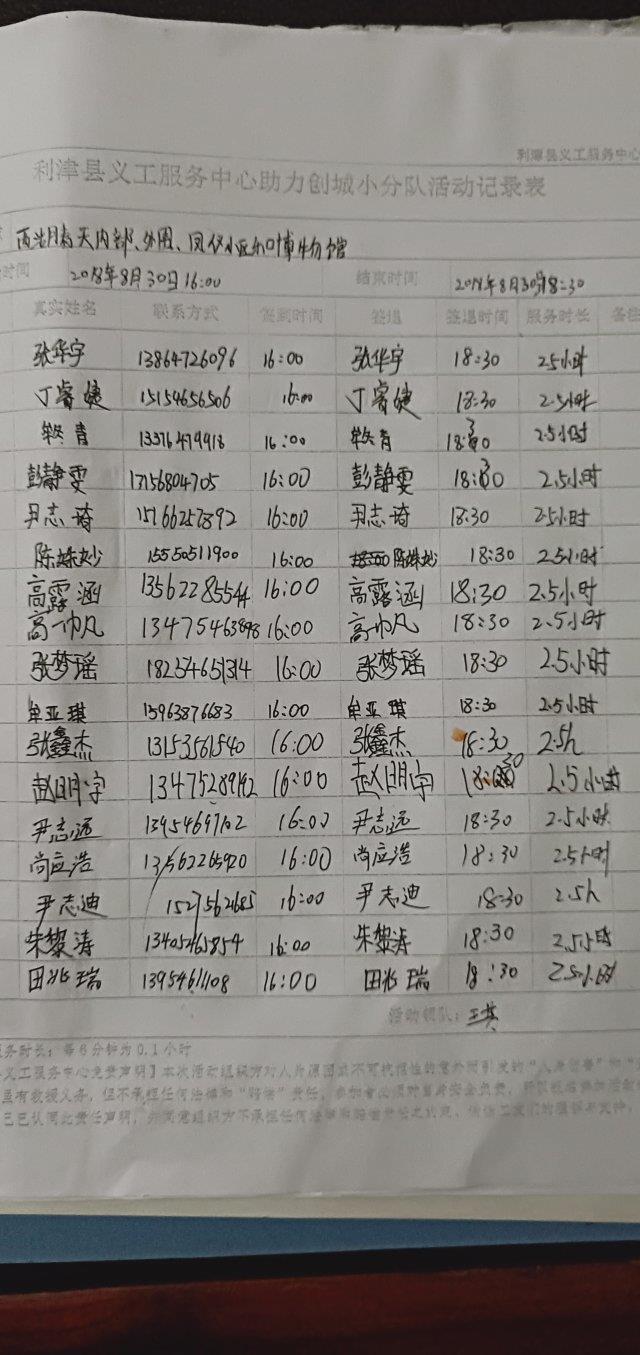 利津县义工服务中心
利津县义工服务中心助力创城小分队活动记录表
天内部、外围、凤仪小区和叶博物馆
时间 2018年8月30日16:00 结束时间 2018年8月30日18:30
真实姓名 联系方式 签到时间 签退 签退时间 服务时长 备注
张华宇 13864726096 16:00 张华宇 18:30 2.5小时
丁睿婕 15154656506 16:00 丁睿婕 18:30 2.5小时
青 13376479918 16:00 青 18:30 2.5小时
彭静雯 17156804705 16:00 彭静雯 18:30 2.5小时
尹志琦 15766257892 16:00 尹志琦 18:30 2.5小时
陈姝妙 15550511900 16:00 陈姝妙 18:30 2.5小时
高露涵 13562285544 16:00 高露涵 18:30 2.5小时
高一帆 13475463898 16:00 高一帆 18:30 2.5小时
张梦瑶 18254651314 16:00 张梦瑶 18:30 2.5小时
牟亚琪 15963876683 16:00 牟亚琪 18:30 2.5小时
张鑫杰 13153561540 16:00 张鑫杰 18:30 2.5h
赵明宇 13475289142 16:00 赵明宇 18:30 2.5小时
尹志远 16:00 尹志远 18:30 2.5小时
尚应浩 13562265920 16:00 尚应浩 18:30 2.5小时
尹志迪 16:00 尹志迪 18:30 2.5h
朱黎涛 13405465854 16:00 朱黎涛 18:30 2.5小时
田兆瑞 16:00 田兆瑞 18:30 2.5小时
活动领队：王其
服务时长：每6分钟为0.1小时
义工服务中心免责声明】本次活动组织方对人为原因或不可抗拒性的意外而引发的“人身伤害”和
有救援义务，但不承担任何法律和“赔偿”责任，参加者必须对自身安全负责，
已认同此责任声明，并同意组织方不承担任何法律和赔偿责任之约定，